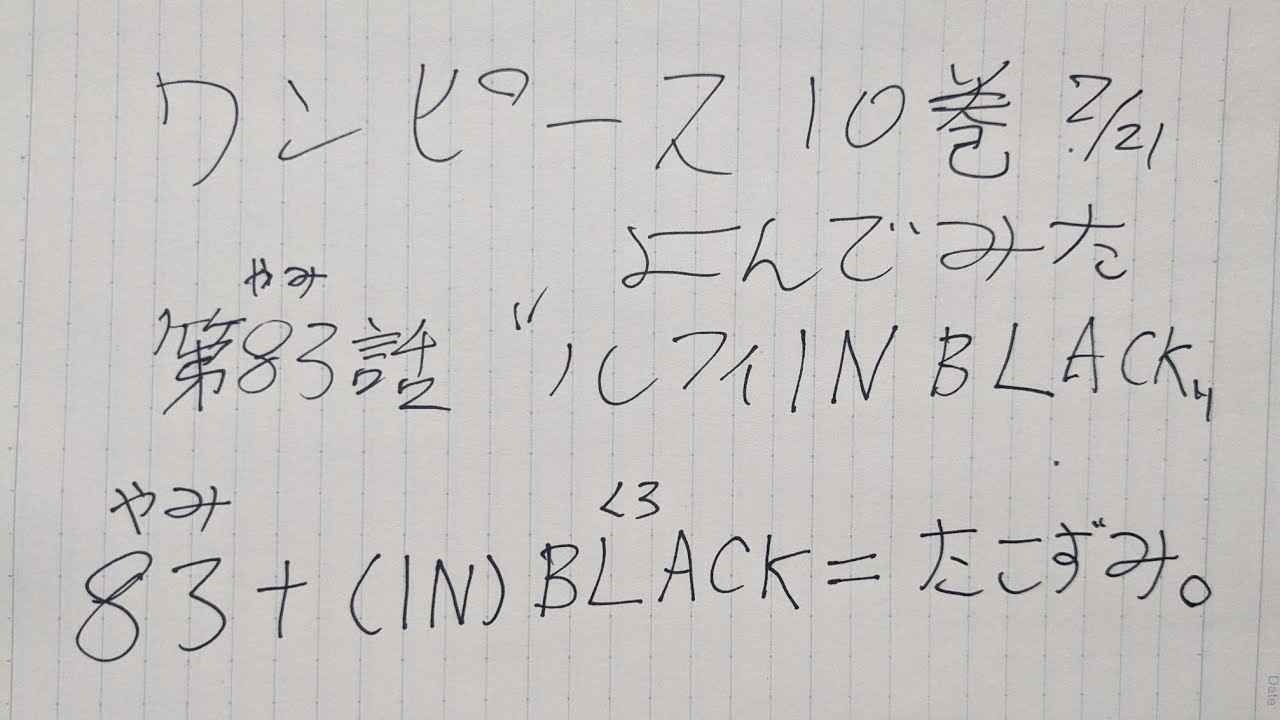 ワンピース 10巻 2/21
よんでみた
やみ
第83話 "ルフィIN BLACK"
やみ くろ
83+(IN)BLACK=たこずみ。
Date